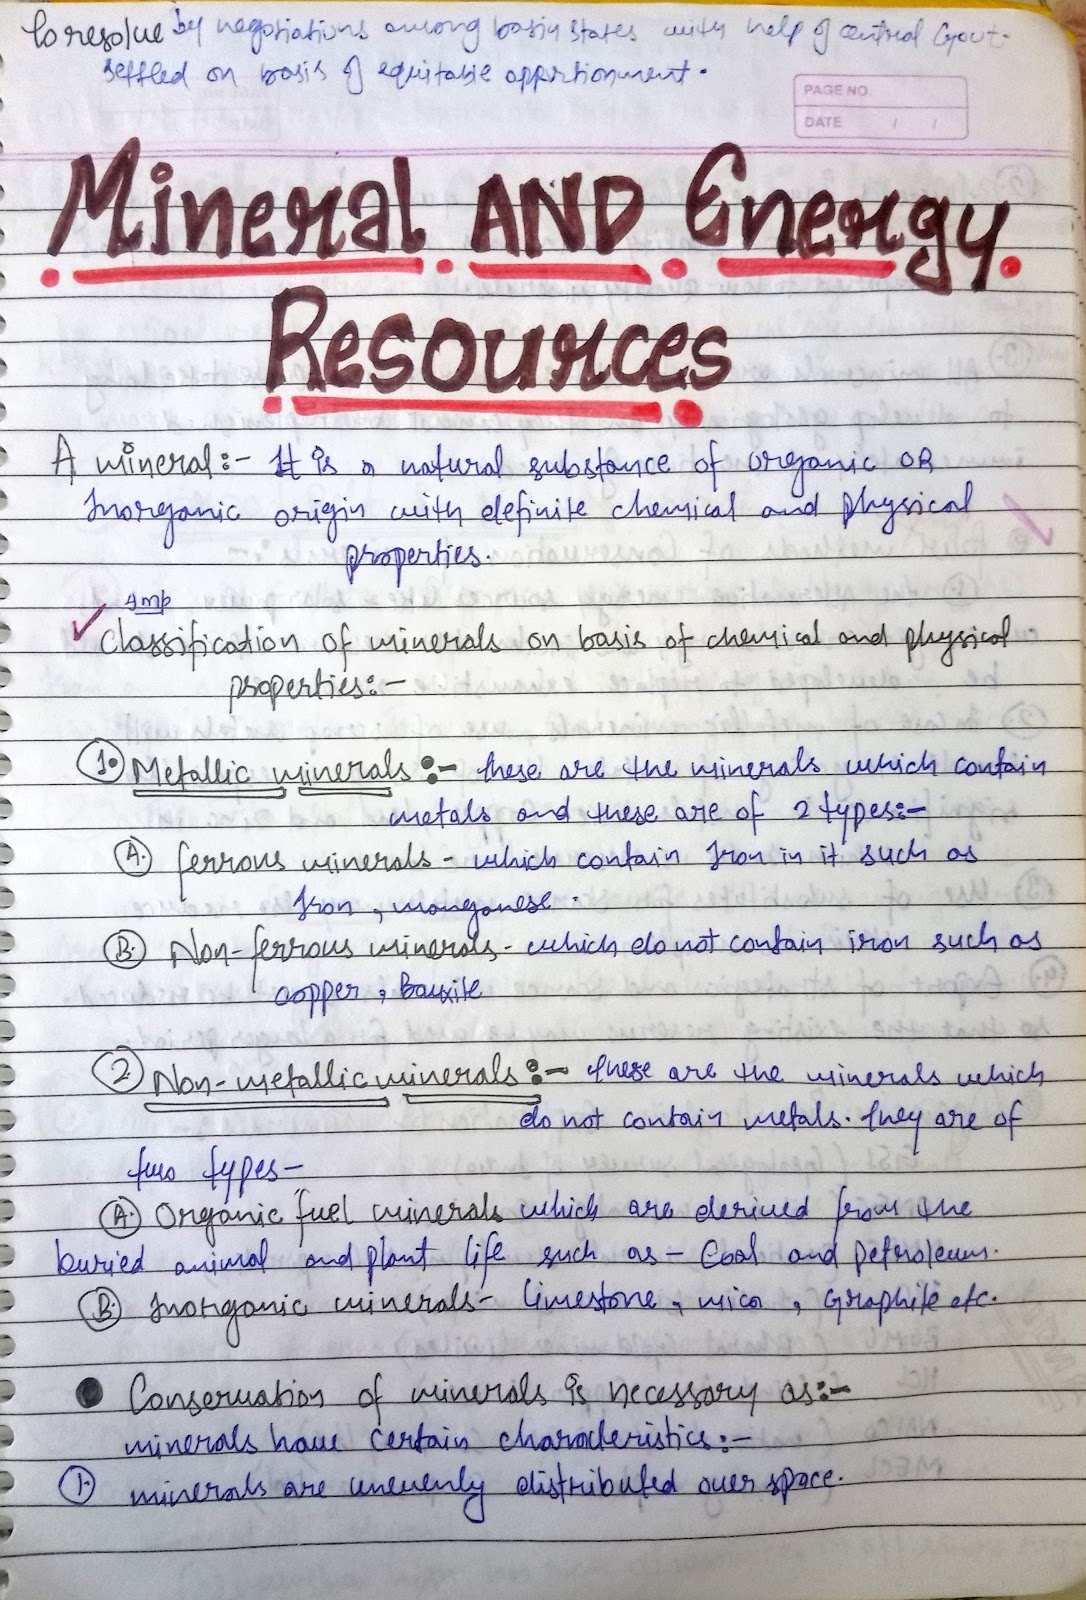 to resolve by negotiations among basin states with help of central Govt.
settled on basis of equitable apportionment.
PAGE NO
DATE / /
Mineral AND Energy
Resources
A mineral:- It is a natural substance of organic OR
Inorganic origin with definite chemical and physical
properties.
Imp
Classification of minerals on basis of chemical and physical
properties:-
1. Metallic minerals:- these are the minerals which contain
metals and these are of 2 types:-
A. ferrous minerals - which contain Iron in it such as
Iron, manganese.
B. Non-ferrous minerals - which do not contain iron such as
copper, Bauxite
2 Non-metallic minerals:- these are the minerals which
do not contain metals. they are of
two types-
A. Organic fuel minerals which are derived from the
buried animal and plant life such as - Coal and Petroleum.
B. Inorganic minerals- limestone, mica, Graphite etc.
Conservation of minerals is necessary as:-
minerals have certain characteristics:-
1. minerals are unevenly distributed over space.